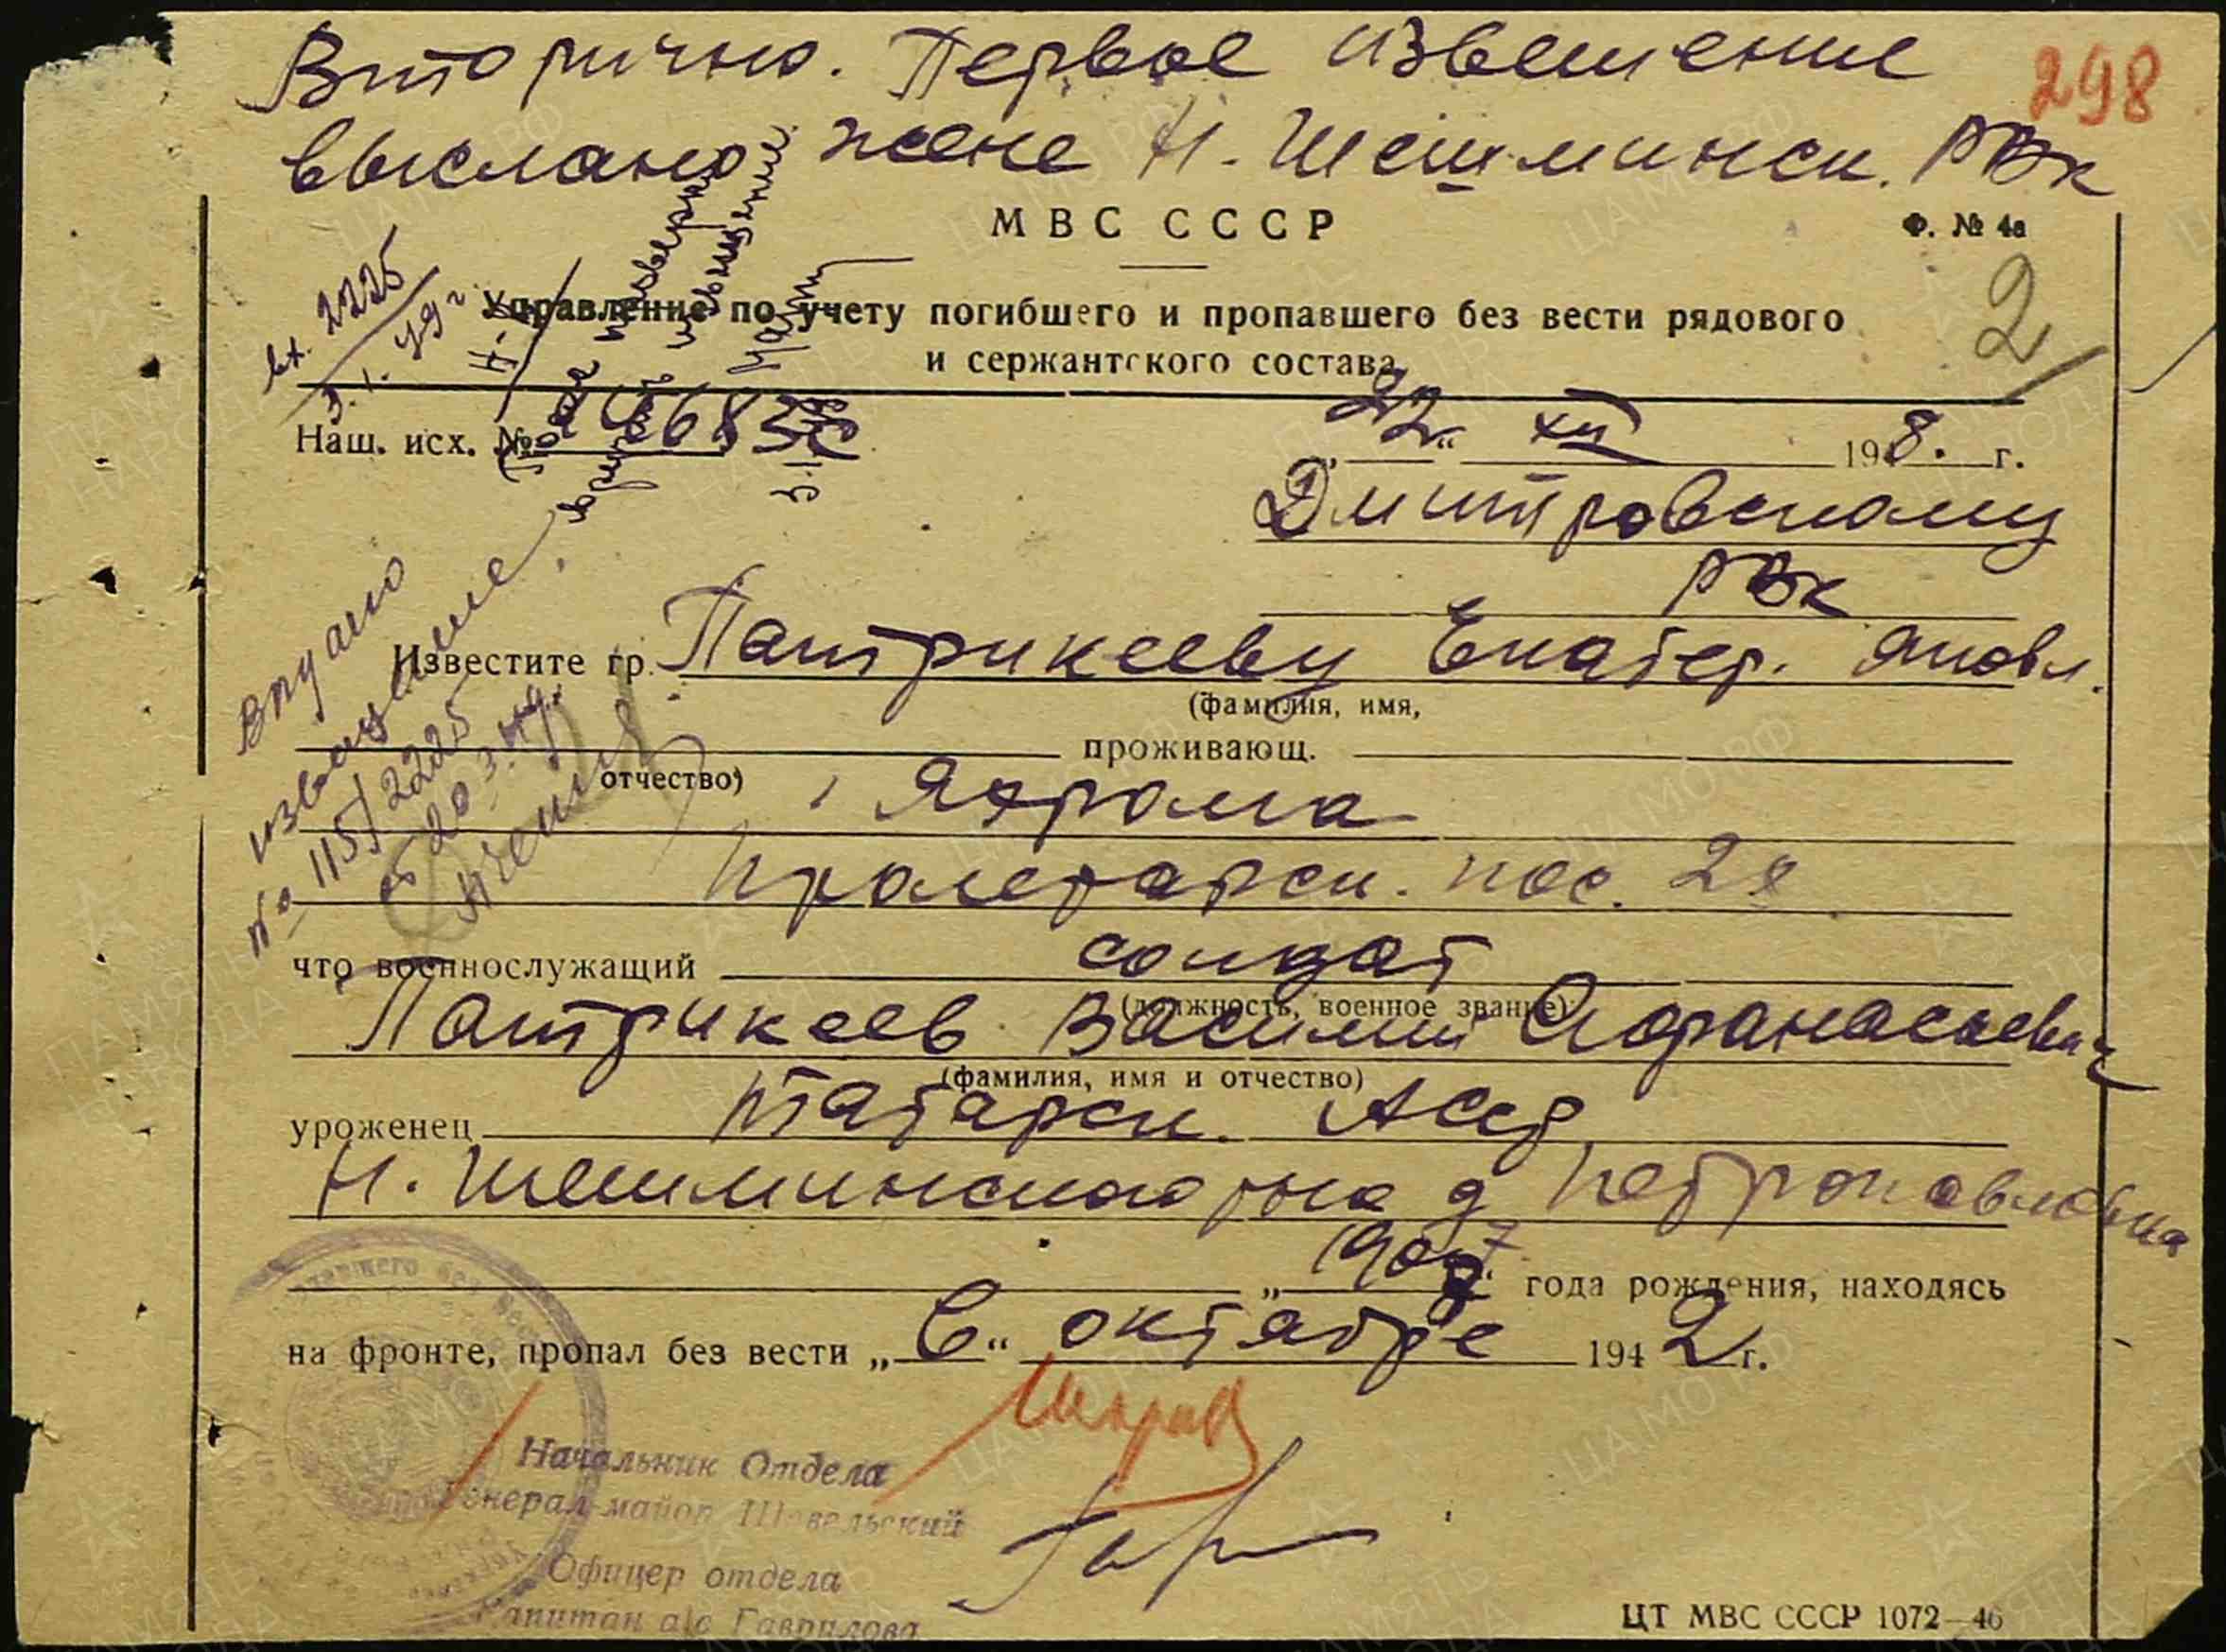 Вторично. Первое извещение
выслано жене Н. Шешминск. РВК
298
МВС СССР
Ф. № 4а
2
вх. 2225
3.1.49 г
Управление по учету погибшего и пропавшего без вести рядового
и сержантского состава
Наш. исх. №
„22“ XII 1948. г.
Дмитровскому
РВК
Вручено
извещение
№ 115/2225
от 20.3.49.
Известите гр. Патрикееву Екатер. Яковл.
(фамилия, имя,
проживающ.
отчество)
Яхрома
Пролетарск. пос. 28
что военнослужащий солдат
(должность, военное звание)
Патрикеев Василий Афанасьевич
(фамилия, имя и отчество)
уроженец Татарск. АССР
Н. Шешминского р-на д Петропавловка
„1907“ года рождения, находясь
на фронте, пропал без вести „6“ октябре 1942 г.
Начальник Отдела
Генерал-майор Шавельский
Офицер отдела
Капитан а/с Гаврилова
ЦТ МВС СССР 1072—46